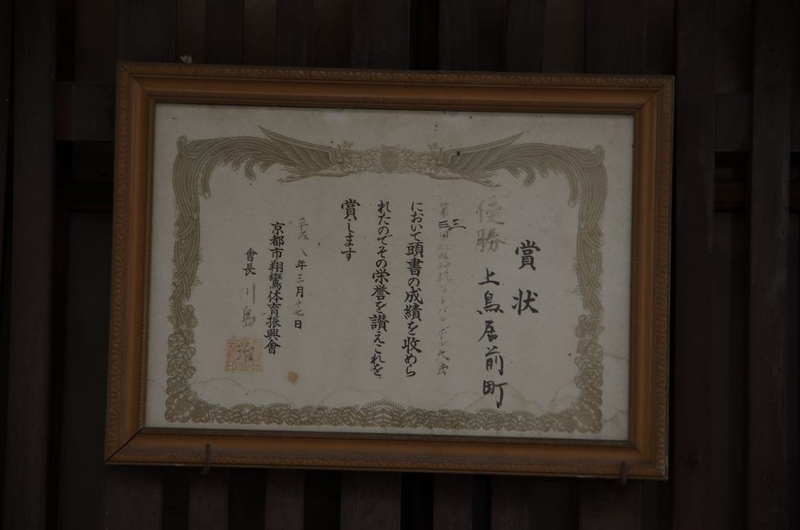 賞状
優勝 上鳥居前町
第三
大会
において頭書の成績を收めら
れたのでその栄誉を讃えこれを
賞します
平成八年三月十七日
京都市翔鸞体育振興會
會長 川島